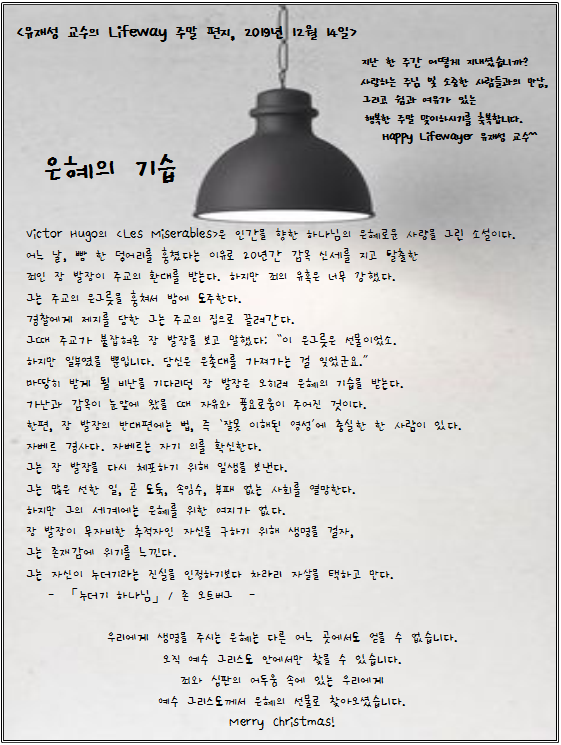 <유재성 교수의 Lifeway 주말 편지, 2019년 12월 14일>
지난 한 주간 어떻게 지내셨습니까?
사랑하는 주님 및 소중한 사람들과의 만남,
그리고 쉼과 여유가 있는
행복한 주말 맞이하시기를 축복합니다.
Happy Lifewayer 유재성 교수^^
은혜의 기습
Victor Hugo의 <Les Miserables>은 인간를 향한 하나님의 은혜로운 사랑를 그린 소설이다.
어느 날, 빵 한 덩어리를 훔쳤다는 이유로 20년간 감옥 신세를 지고 탈출한
죄인 장 발장이 주교의 환대를 받는다. 하지만 죄의 유혹은 너무 강했다.
그는 주교의 은그릇을 훔쳐서 밤에 도주한다.
경찰에게 제지를 당한 그는 주교의 집으로 끌려간다.
그때 주교가 붙잡혀온 장 발장를 보고 말했다: "이 은그릇은 선물이었소.
하지만 일부였을 뿐입니다. 당신은 은촛대를 가져가는 걸 잊었군요."
마땅히 받게 될 비난를 기다리던 장 발장은 오히려 은혜의 기습을 받는다.
가난과 감옥이 눈앞에 왔을 때 자유와 풍요로움이 주어진 것이다.
한편, 장 발장의 반대편에는 법, 즉 '잘못 이해된 영성'에 충실한 한 사람이 있다.
자베르 경사다. 자베르는 자기 의를 확신한다.
그는 장 발장를 다시 체포하기 위해 일생을 보낸다.
그는 많은 선한 일, 곧 도둑, 속임수, 부패 없는 사회를 열망한다.
하지만 그의 세계에는 은혜를 위한 여지가 없다.
장 발장이 무자비한 추적자인 자신을 구하기 위해 생명을 걸자,
그는 존재감에 위기를 느낀다.
그는 자신이 누더기라는 진실을 인정하기보다 차라리 자살을 택하고 만다.
- 「누더기 하나님」 / 존 오트버그 -
우리에게 생명을 주시는 은혜는 다른 어느 곳에서도 얻을 수 없습니다.
오직 예수 그리스도 안에서만 찾을 수 있습니다.
죄와 심판의 어두움 속에 있는 우리에게
예수 그리스도께서 은혜의 선물로 찾아오셨습니다.
Merry Christmas!